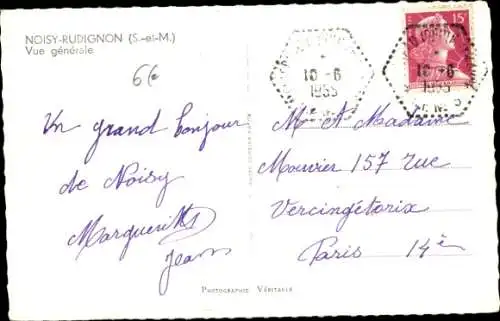 NOISY-RUDIGNON (S.-et-M.)
Vue générale
Un grand bonjour
de Noisy
Marguerite
Jean
15F
10-6
1955
10-6
1955
Mr et Madame
Mouvier 157 rue
Vercingétorix
Paris 14è
PHOTOGRAPHIE VÉRITABLE